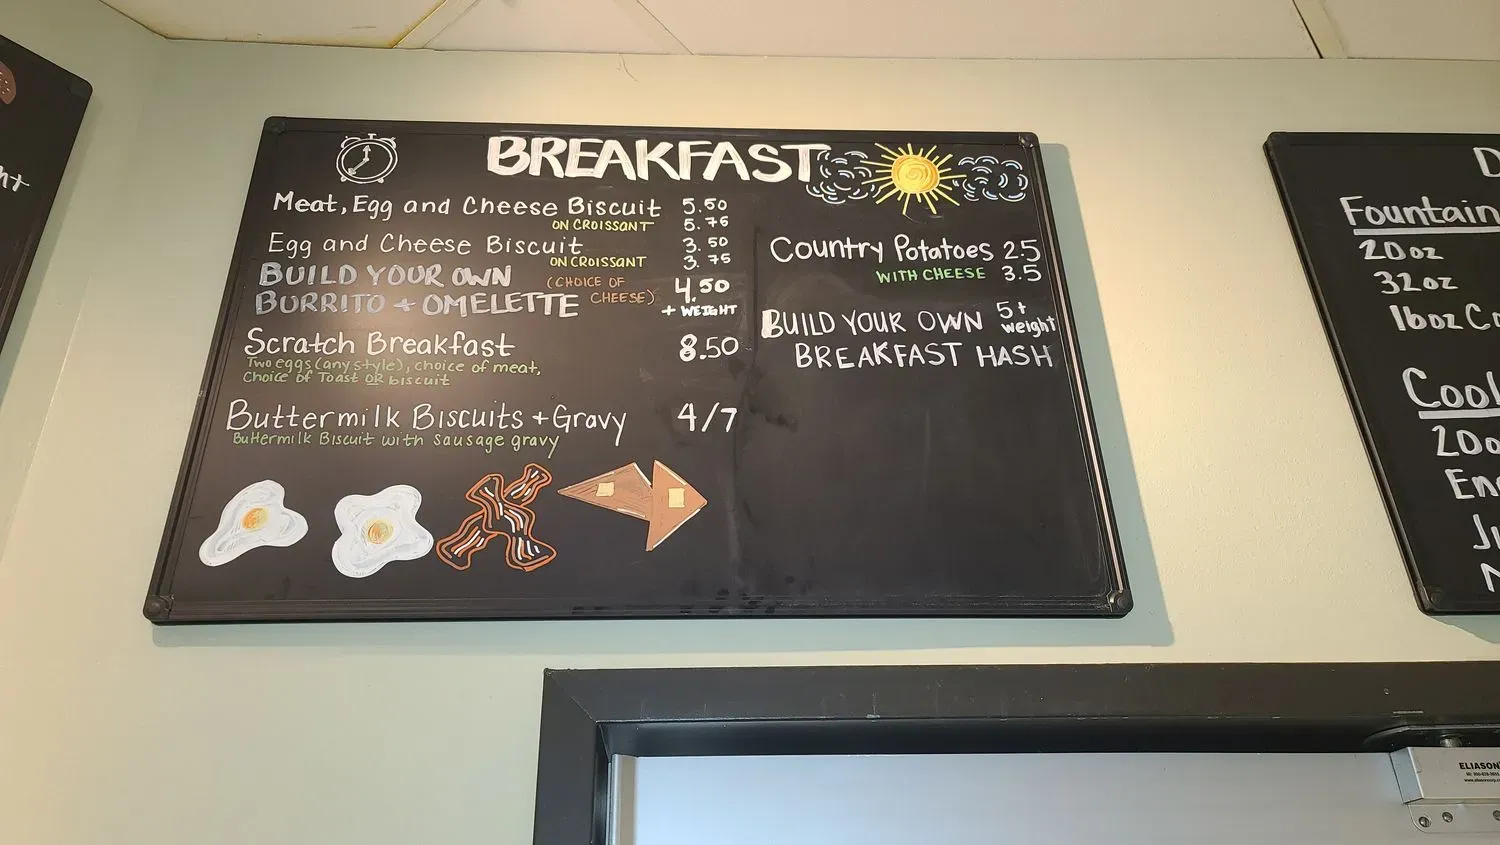 BREAKFAST
Meat, Egg and Cheese Biscuit 5.50
ON CROISSANT 5.75
Egg and Cheese Biscuit 3.50
ON CROISSANT 3.75
BUILD YOUR OWN (CHOICE OF 4.50
BURRITO + OMELETTE CHEESE) + WEIGHT
Scratch Breakfast 8.50
Two eggs (any style), choice of meat,
Choice of Toast OR biscuit
Buttermilk Biscuits + Gravy 4/7
Buttermilk Biscuit with sausage gravy
Country Potatoes 2.5
WITH CHEESE 3.5
BUILD YOUR OWN 5+ weight
BREAKFAST HASH
D
Fountain
20oz
32oz
16oz Co
Cool
20o
En
Ju
ELIASON